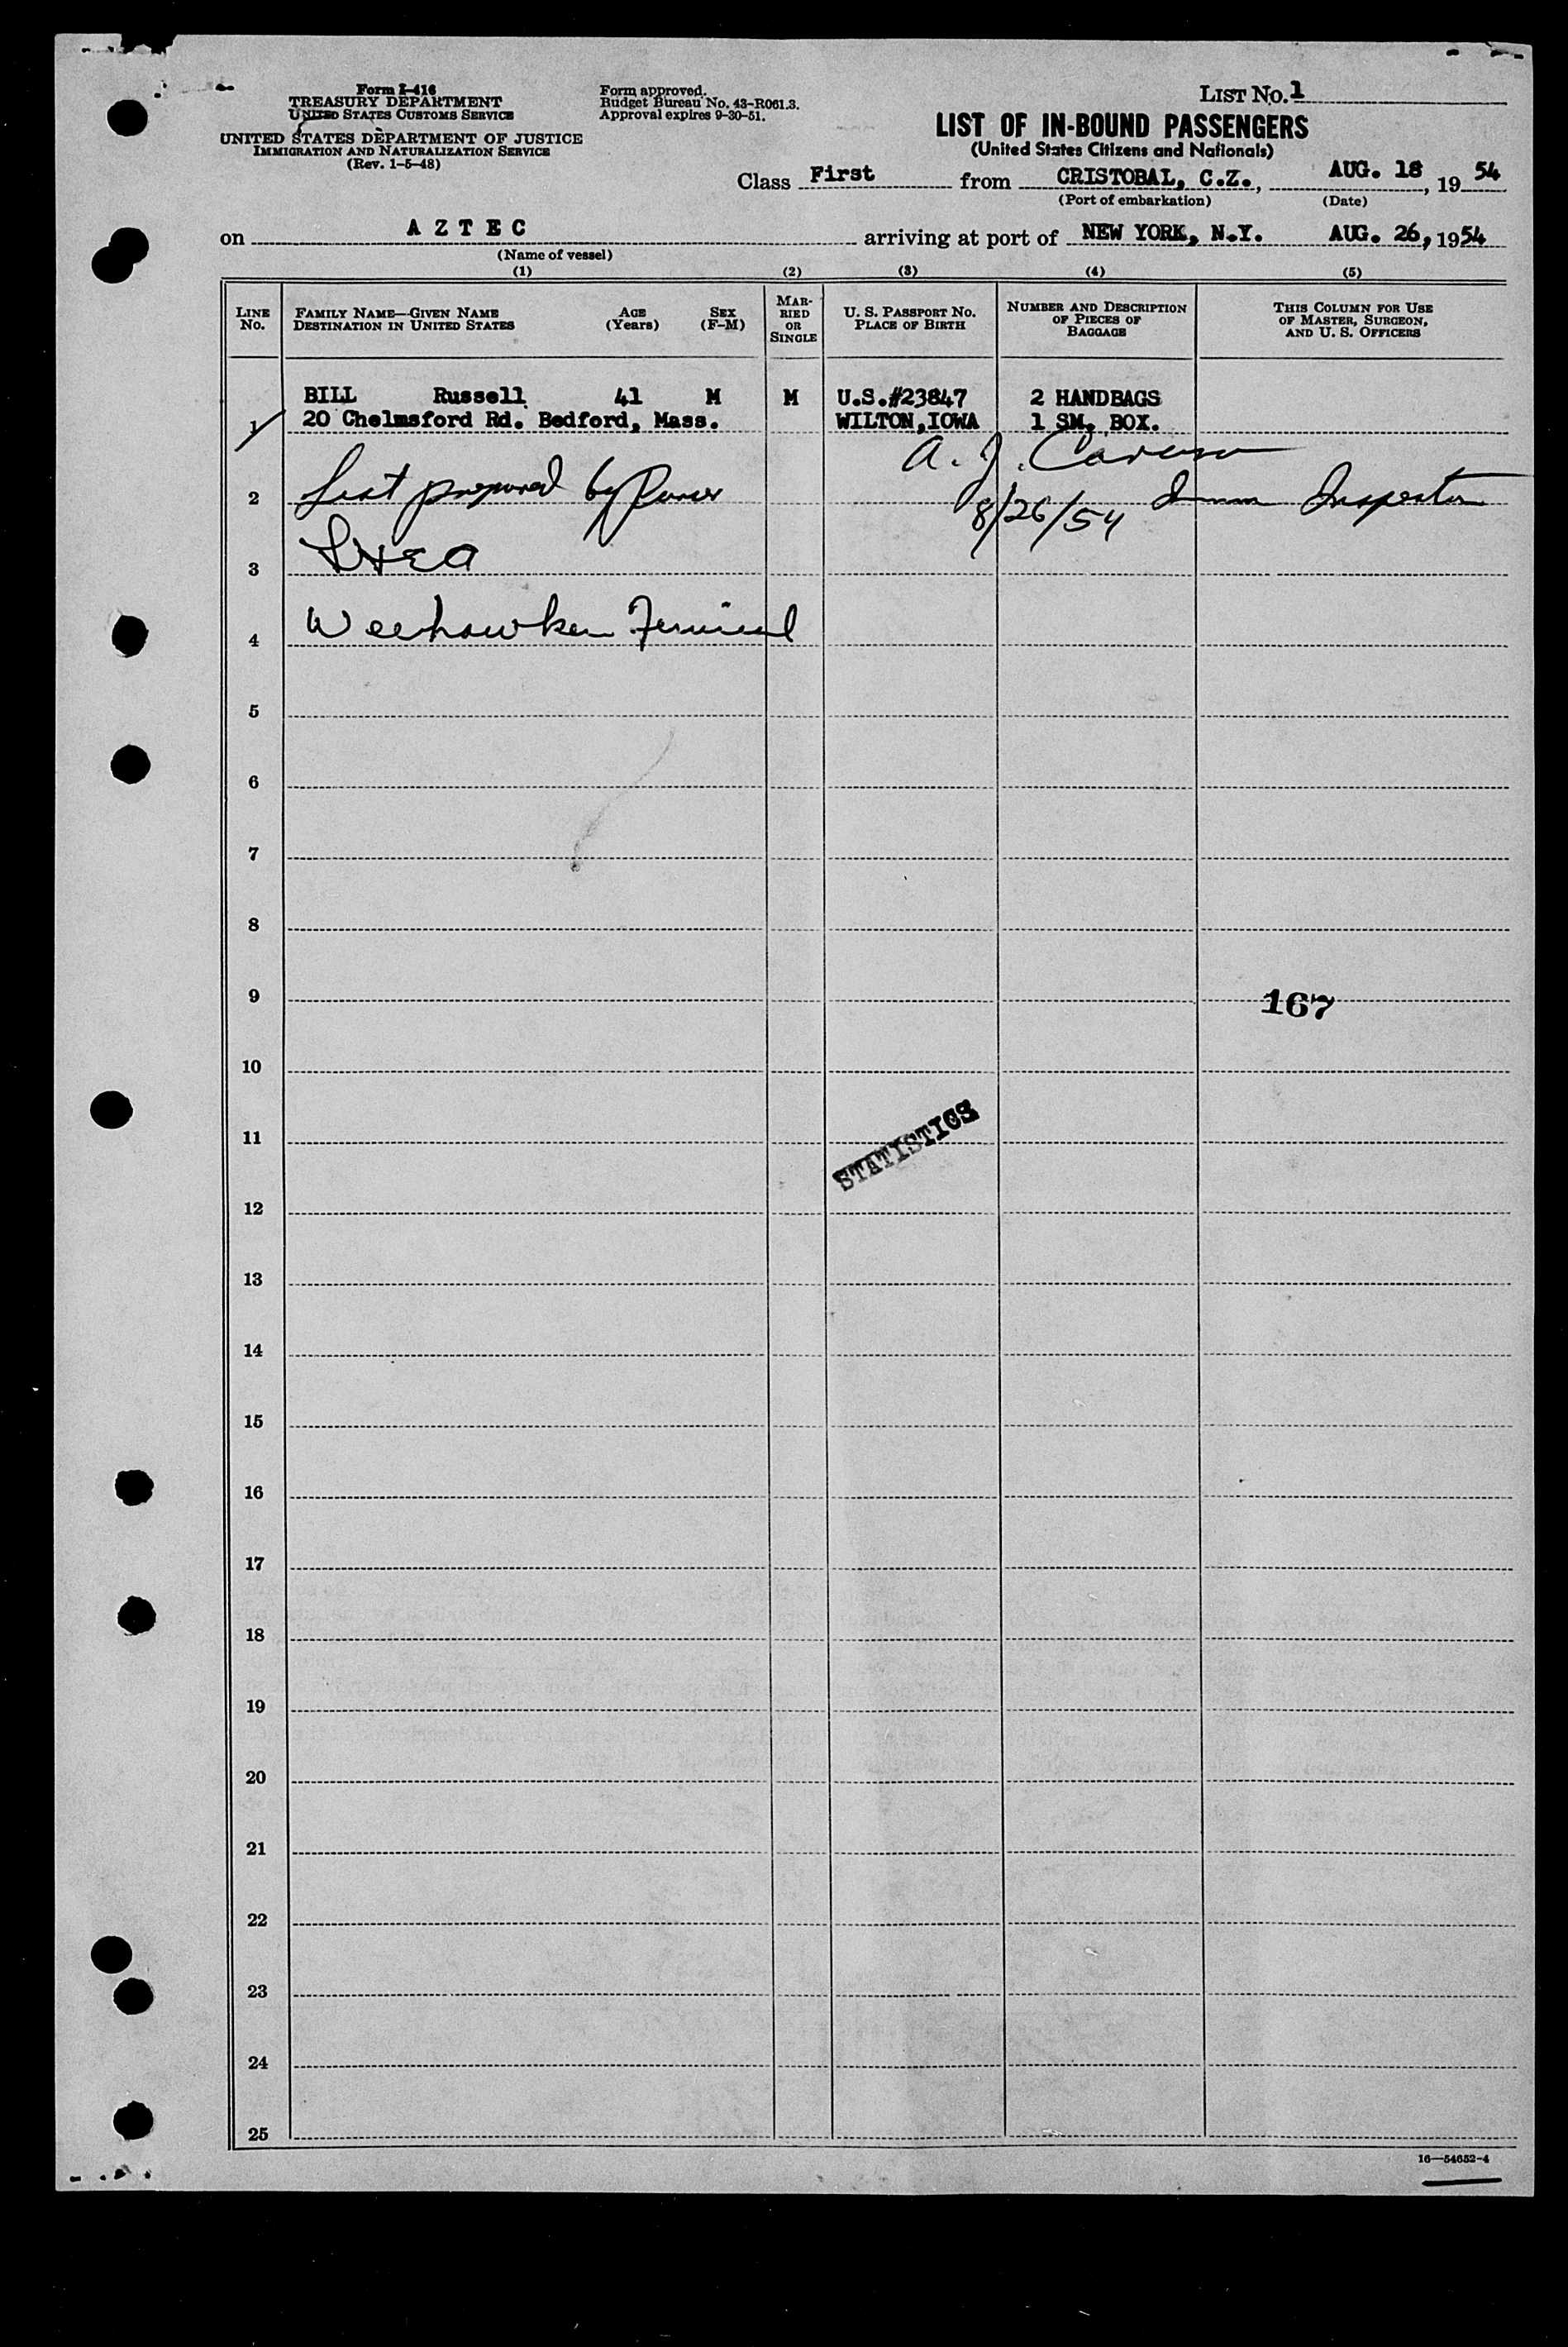 Form I-416
TREASURY DEPARTMENT
UNITED STATES CUSTOMS SERVICE
UNITED STATES DEPARTMENT OF JUSTICE
IMMIGRATION AND NATURALIZATION SERVICE
(Rev. 1-5-48)
Form approved.
Budget Bureau No. 43-R061.3.
Approval expires 9-30-51.
LIST No. 1
LIST OF IN-BOUND PASSENGERS
(United States Citizens and Nationals)
Class First from CRISTOBAL, C.Z., AUG. 18, 19 54
(Port of embarkation) (Date)
on AZTEC arriving at port of NEW YORK, N.Y. AUG. 26, 1954
(Name of vessel)
(1) (2) (3) (4) (5)
LINE No.
FAMILY NAME—GIVEN NAME
DESTINATION IN UNITED STATES
AGE
(Years)
SEX
(F-M)
MARRIED OR SINGLE
U. S. PASSPORT No.
PLACE OF BIRTH
NUMBER AND DESCRIPTION
OF PIECES OF
BAGGAGE
THIS COLUMN FOR USE
OF MASTER, SURGEON,
AND U. S. OFFICERS
BILL Russell 41 M M U.S.#23847 2 HANDBAGS
1 20 Chelmsford Rd. Bedford, Mass. WILTON, IOWA 1 SM. BOX.
A. J. Caruso
2 List prepared by Purser 8/26/54 Imm Inspector
3
4 Weehawken Terminal
5
6
7
8
9 167
10
11 STATISTICS
12
13
14
15
16
17
18
19
20
21
22
23
24
25
16—54652-4